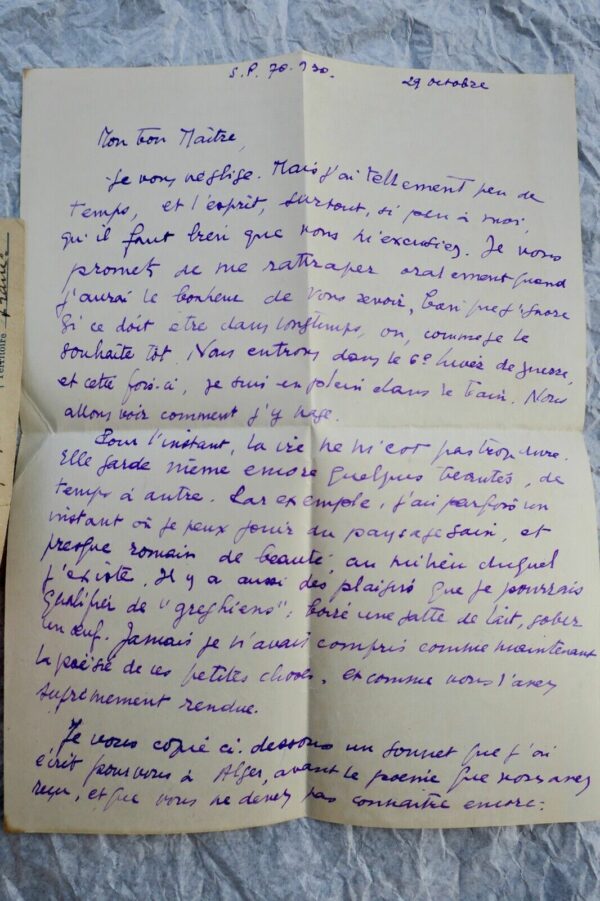 S.P. 70.130.
29 octobre
Mon bon Maître,
Je vous néglige. Mais j'ai tellement peu de
temps, et l'esprit, surtout, si peu à moi,
qu'il faut bien que vous m'excusiez. Je vous
promets de me rattraper oralement quand
j'aurai le bonheur de vous revoir, bien que j'ignore
si ce doit être dans longtemps, ou, comme je le
souhaite tôt. Nous entrons dans le 6e hiver de guerre,
et cette fois-ci, je suis en plein dans le bain. Nous
allons voir comment j'y nage.
Pour l'instant, la vie ne m'est pas trop dure.
Elle garde même encore quelques beautés, de
temps à autre. Par exemple, j'ai parfois un
instant où je peux jouir du paysage sain, et
presque romain de beauté, au milieu duquel
j'existe. Il y a aussi des plaisirs que je pourrais
qualifier de "greghiens": boire une jatte de lait, gober
un œuf. Jamais je n'avais compris comme maintenant
la poésie de ces petites choses, et comme vous l'avez
suprêmement rendue.
Je vous copie ci-dessous un sonnet que j'ai
écrit pour vous à Alger, avant le poème que vous avez
reçu, et que vous ne devez pas connaître encore:
Territoire
France